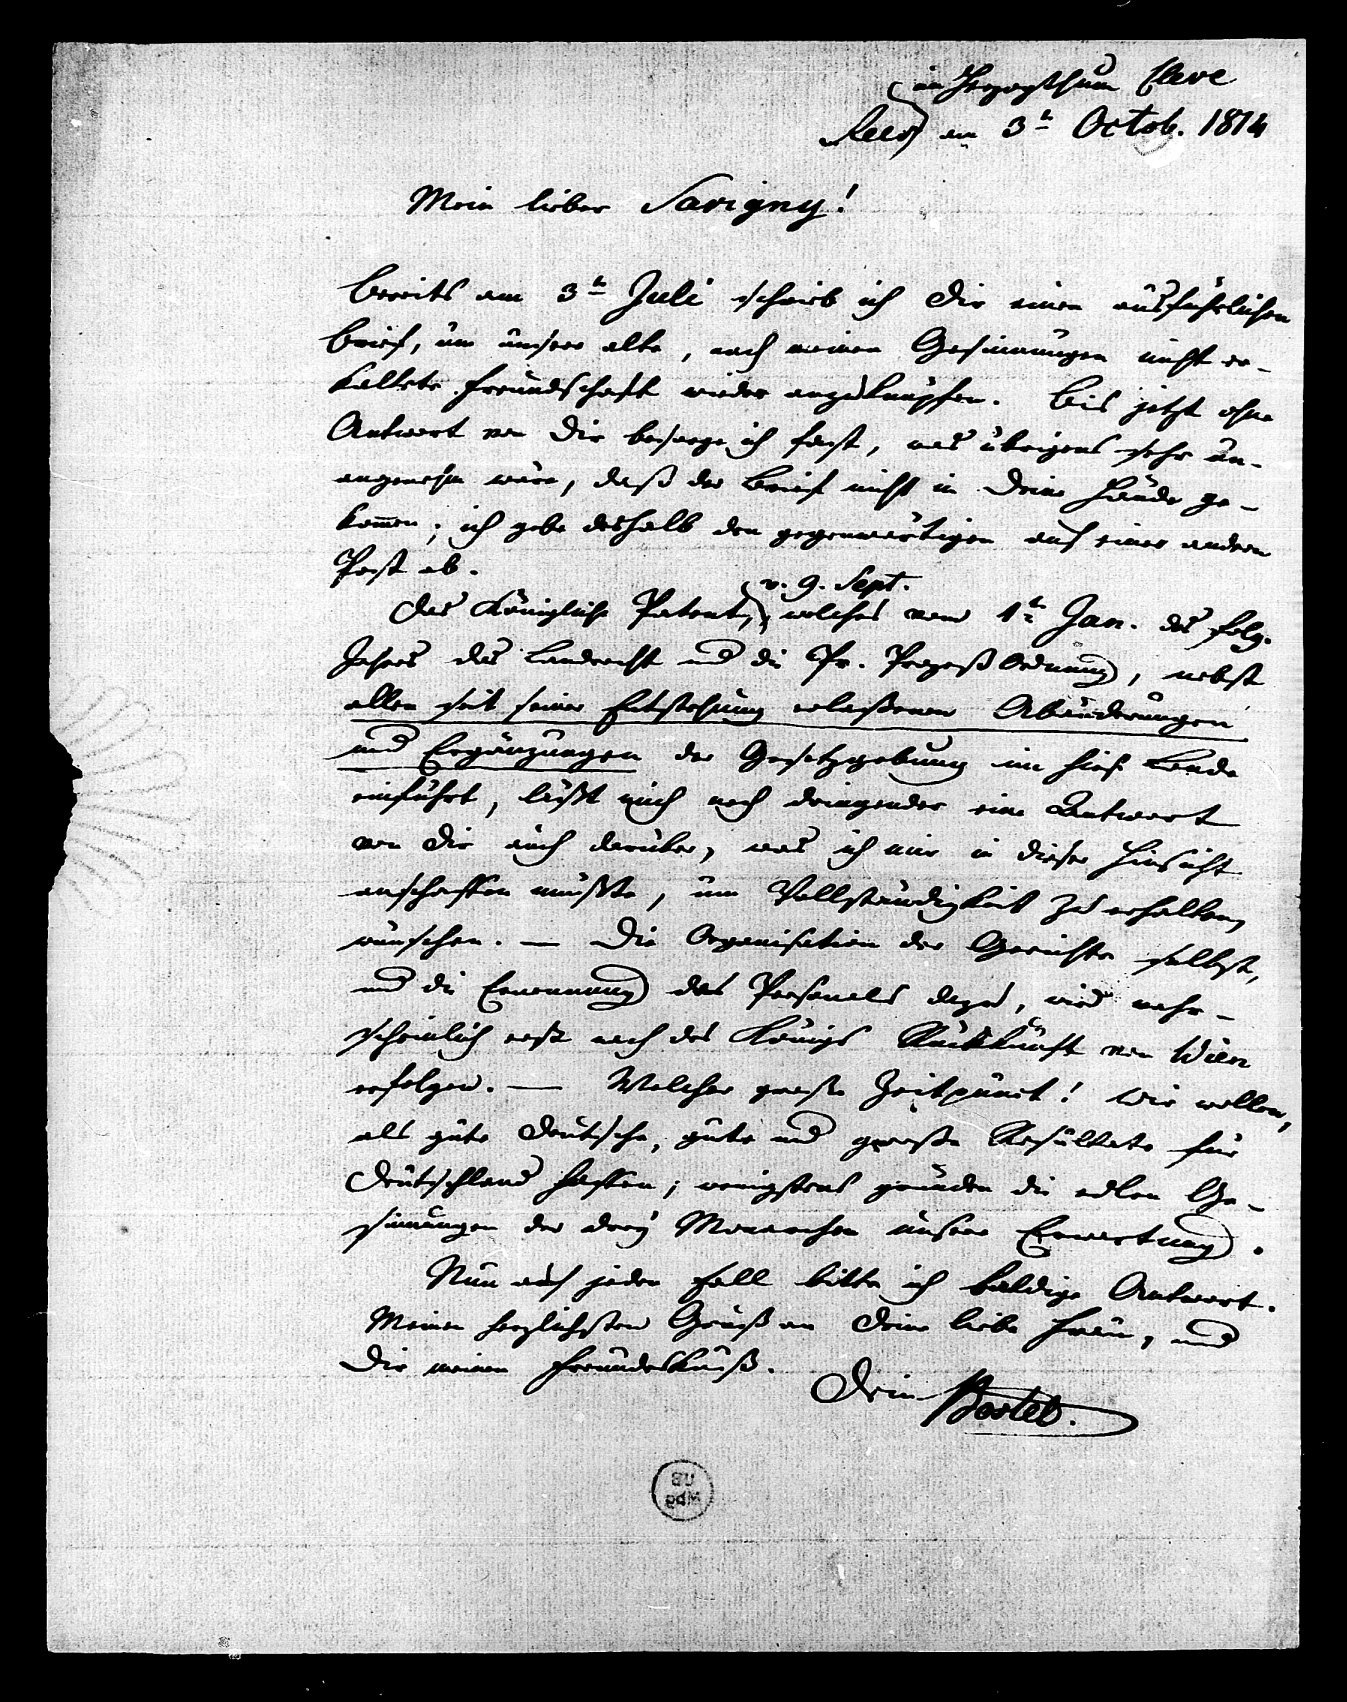 im Herzogthum Cleve
Rees am 3t Octob. 1814
Mein lieber Savigny!
Bereits am 3t Juli schrieb ich Dir einen ausführlichen
Brief, um unsere alte, nach meinen Gesinnungen nicht er-
kaltete Freundschaft wieder anzuknüpfen. Bis jetzt ohne
Antwort von Dir besorge ich fast, was übrigens sehr un-
angenehm wäre, daß der Brief nicht in Deine Hände ge-
kommen; ich gebe deshalb den gegenwärtigen auf einer andern
Post ab.
v. 9. Sept.
Das Königliche Patent, welches vom 1t Jan. des folg.
Jahres das Landrecht und die Pr. Prozeß Ordnung, nebst
allen seit seiner Entstehung erlaßenen Abänderungen
und Ergänzungen der Gesetzgebung im hies. Lande
einführt, läßt mich noch dringender eine Antwort
von Dir auch darüber, was ich mir in dieser Hinsicht
anschaffen müßte, um Vollständigkeit zu erhalten,
wünschen. — Die Organisation der Gerichte selbst,
und die Ernennung des Personals dazu, wird wahr-
scheinlich erst nach des Königs Rückkunft von Wien
erfolgen. — Welcher große Zeitpunct! Wir wollen,
als gute Deutsche, gute und große Resultate für
Deutschland hoffen; wenigstens gründen die edlen Ge-
sinnungen der drey Monarchen unsere Erwartung.
Nun auf jeden Fall bitte ich baldige Antwort.
Meinen herzlichsten Gruß an Deine liebe Frau, und
Dir meinen Freundeskuß.
Dein
UB
Mbg